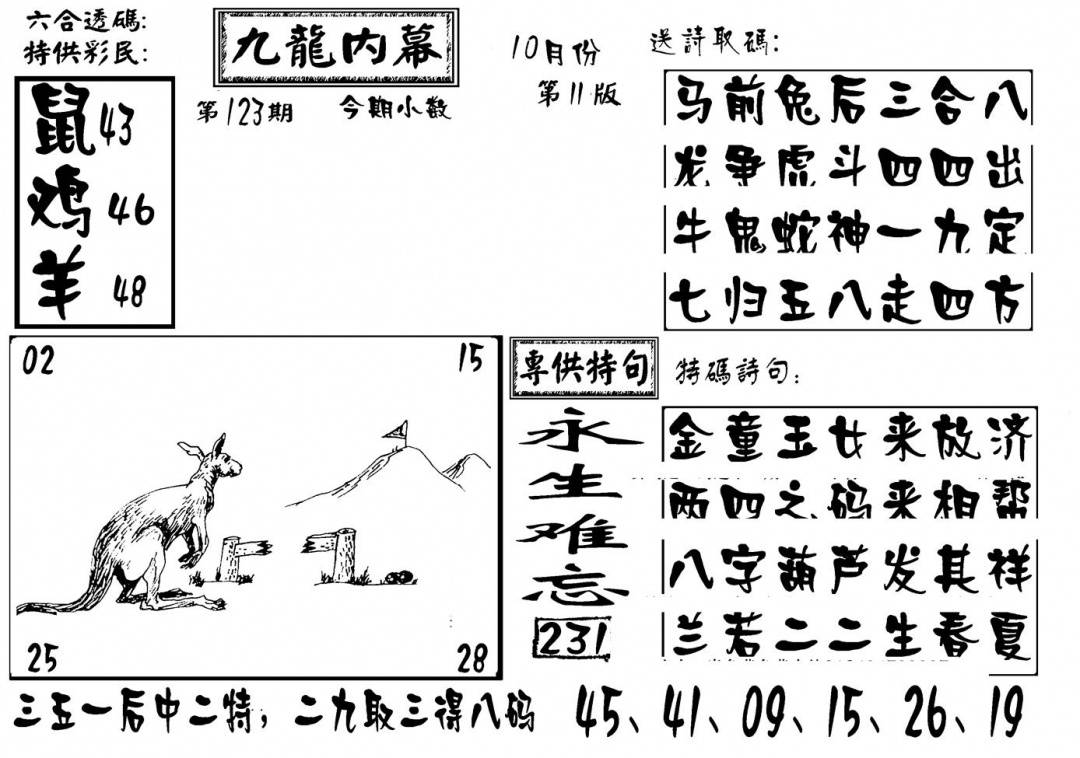 六合透碼:
特供彩民:
九龍内幕
10月份
第11版
第123期
今期小数
鼠43
鸡46
羊48
送詩取碼:
马前兔后三合八
龙争虎斗四四出
牛鬼蛇神一九定
七归五八走四方
02
15
25
28
專供特句
永生难忘
231
特碼詩句:
金童玉女来放济
两四之码来相帮
八字葫芦发其祥
兰若二二生春夏
三五一后中二特,二九取三得八码
45、41、09、15、26、19